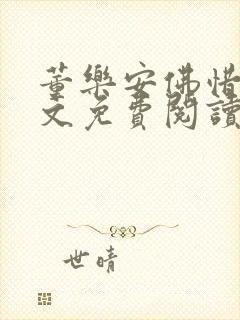 董樂安佛惜
文免費閱讀
世晴